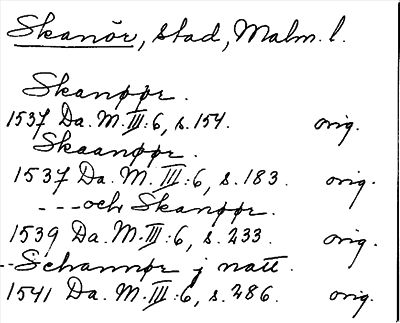 Skanör, stad, Malm. l.
Skanøør.
1537 Da. M. III:6, s. 154. orig.
Skaanøør.
1537 Da. M. III:6, s. 183. orig.
--- och Skanøør.
1539 Da. M. III:6, s. 233. orig.
-- Schannør j natt.
1541 Da. M. III:6, s. 286. orig.